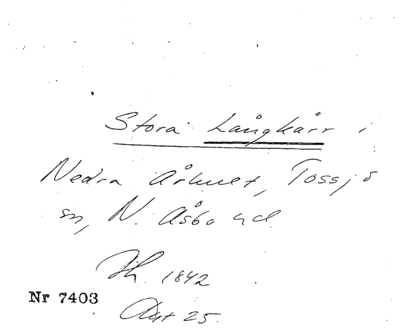 Stora Långkärr i
Nedra Århult, Tossjö
sn, N. Åsbo hd.
Jh. 1842
Akt 25.
Nr 7403